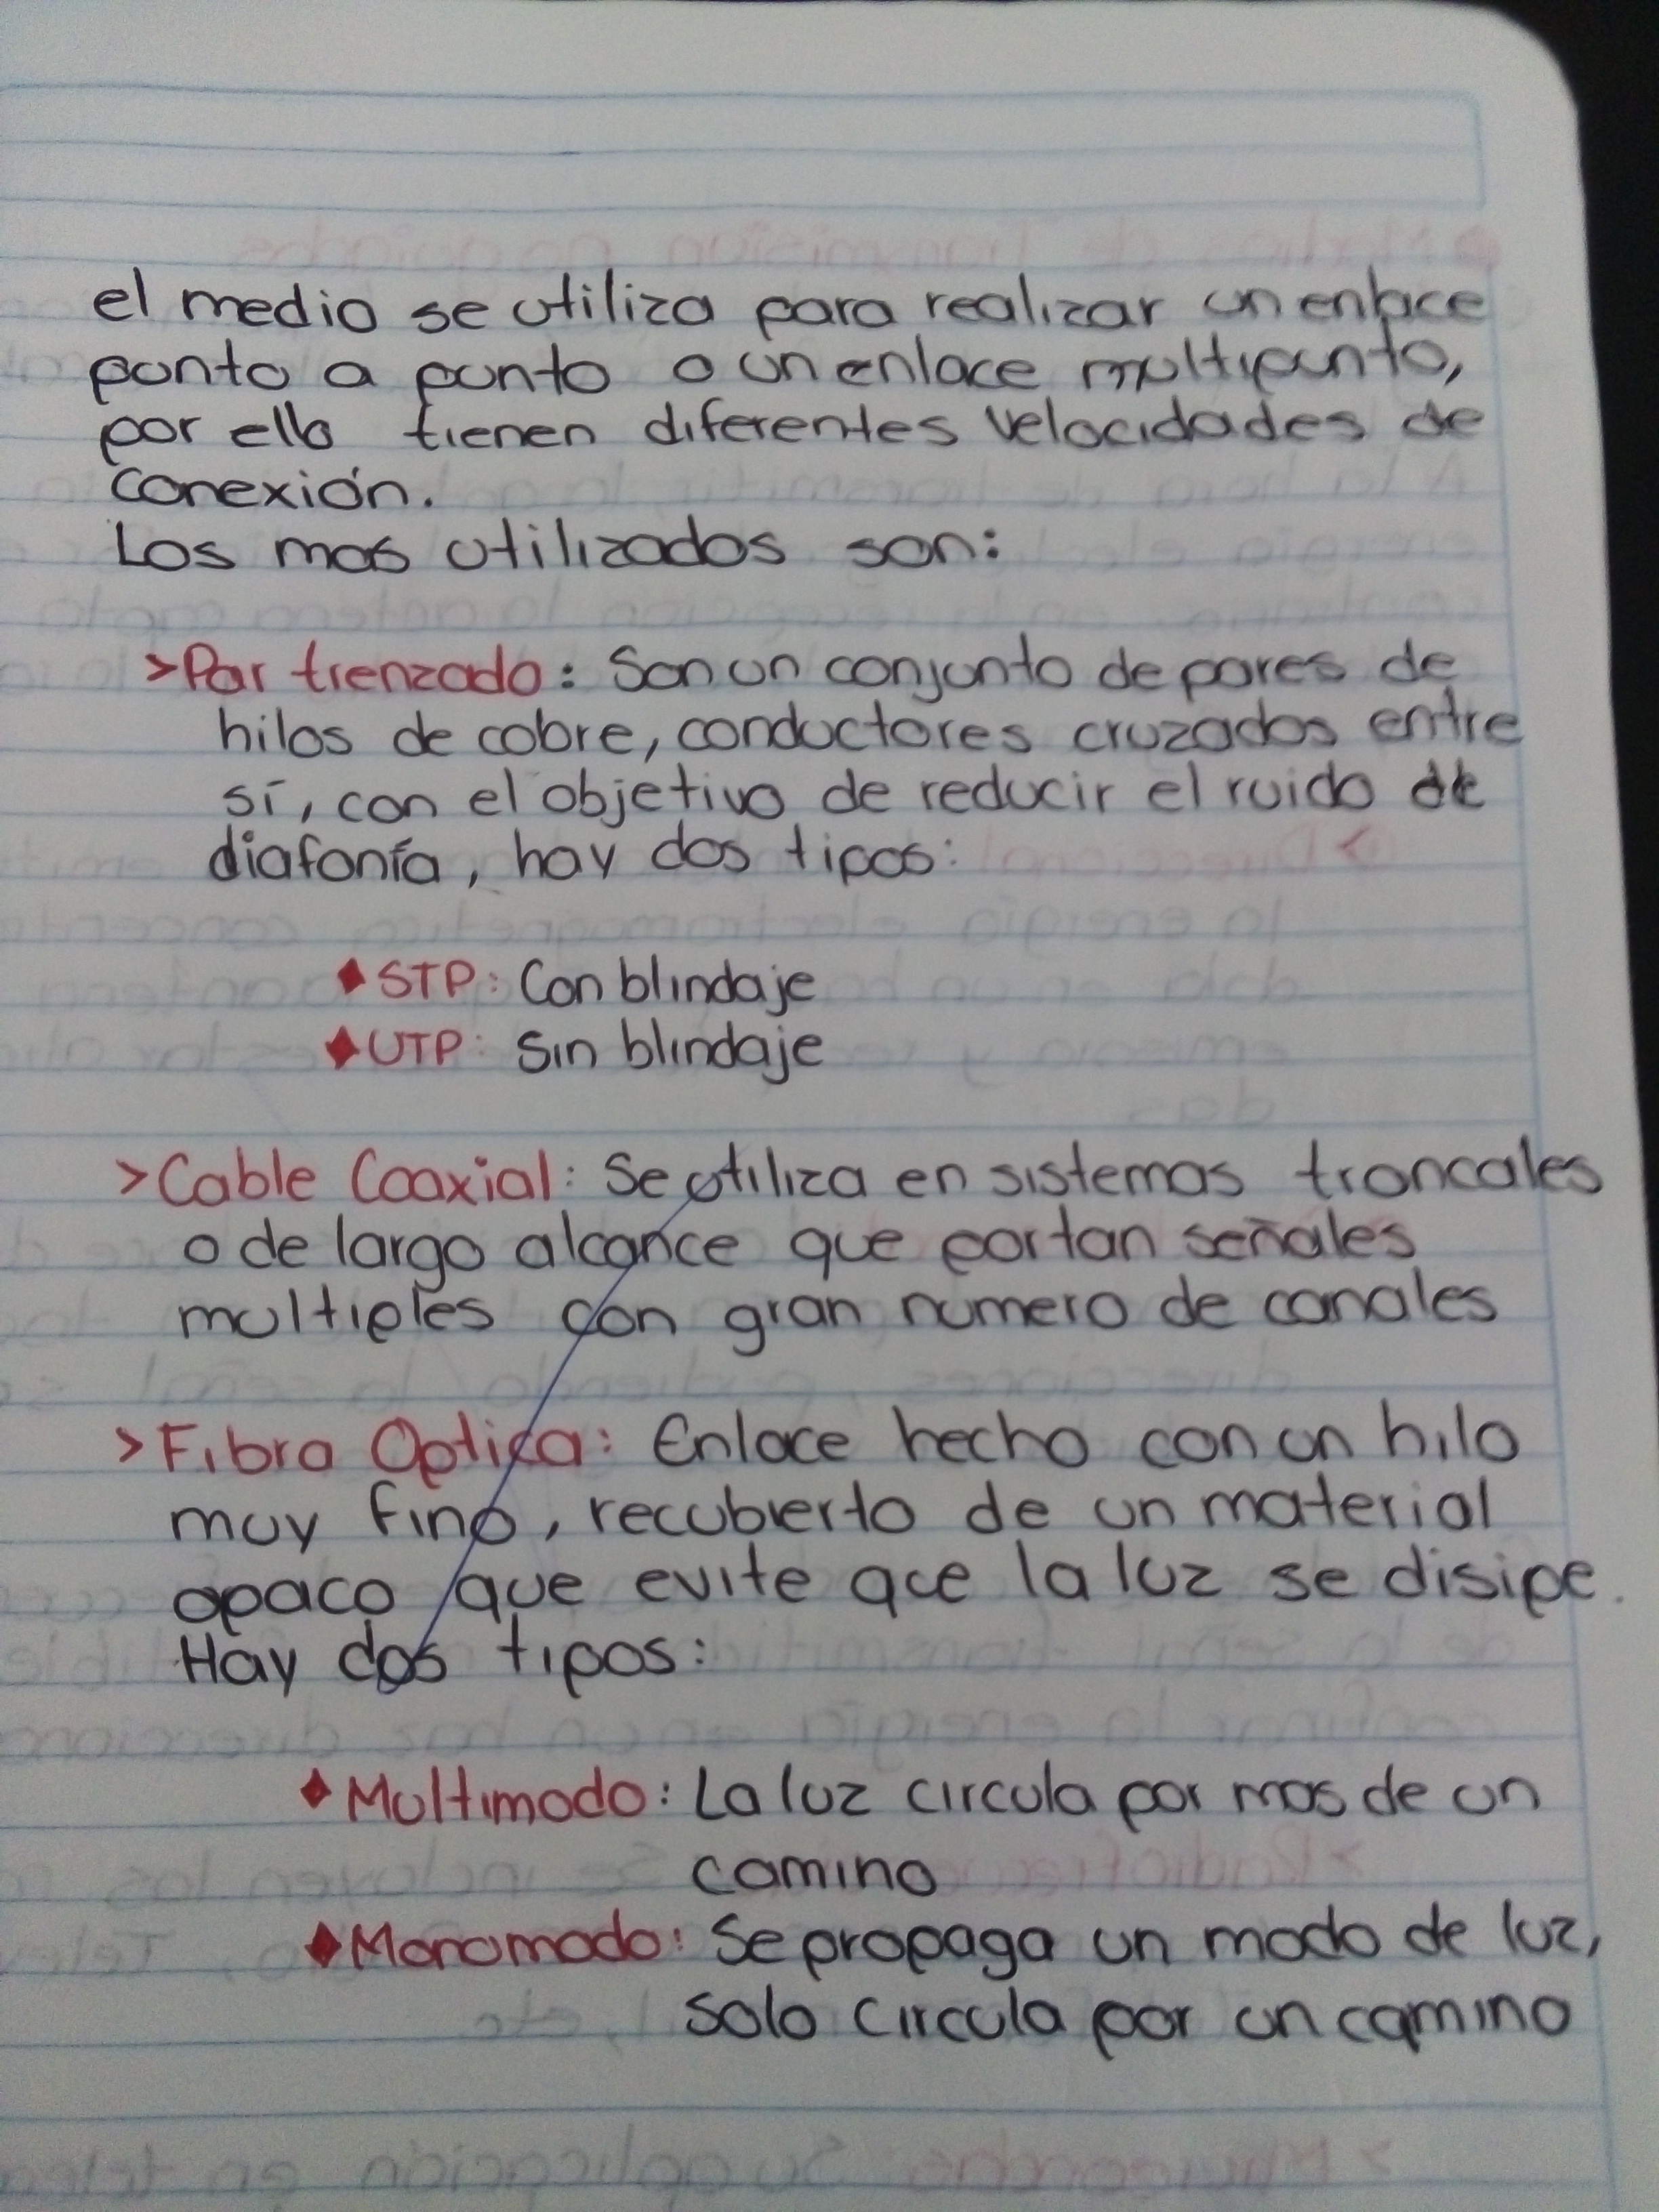 el medio se utiliza para realizar un enlace
punto a punto o un enlace multipunto,
por ello tienen diferentes velocidades de
conexión.
Los mas utilizados son:
>Par trenzado: Son un conjunto de pares de
hilos de cobre, conductores cruzados entre
sí, con el objetivo de reducir el ruido de
diafonía, hay dos tipos:
♦STP: Con blindaje
♦UTP: Sin blindaje
>Cable Coaxial: Se utiliza en sistemas troncales
o de largo alcance que portan señales
multiples con gran numero de canales
>Fibra Optica: Enlace hecho con un hilo
muy fino, recubierto de un material
opaco que evite que la luz se disipe.
Hay dos tipos:
♦Multimodo: La luz circula por mas de un
camino
♦Monomodo: Se propaga un modo de luz,
solo circula por un camino